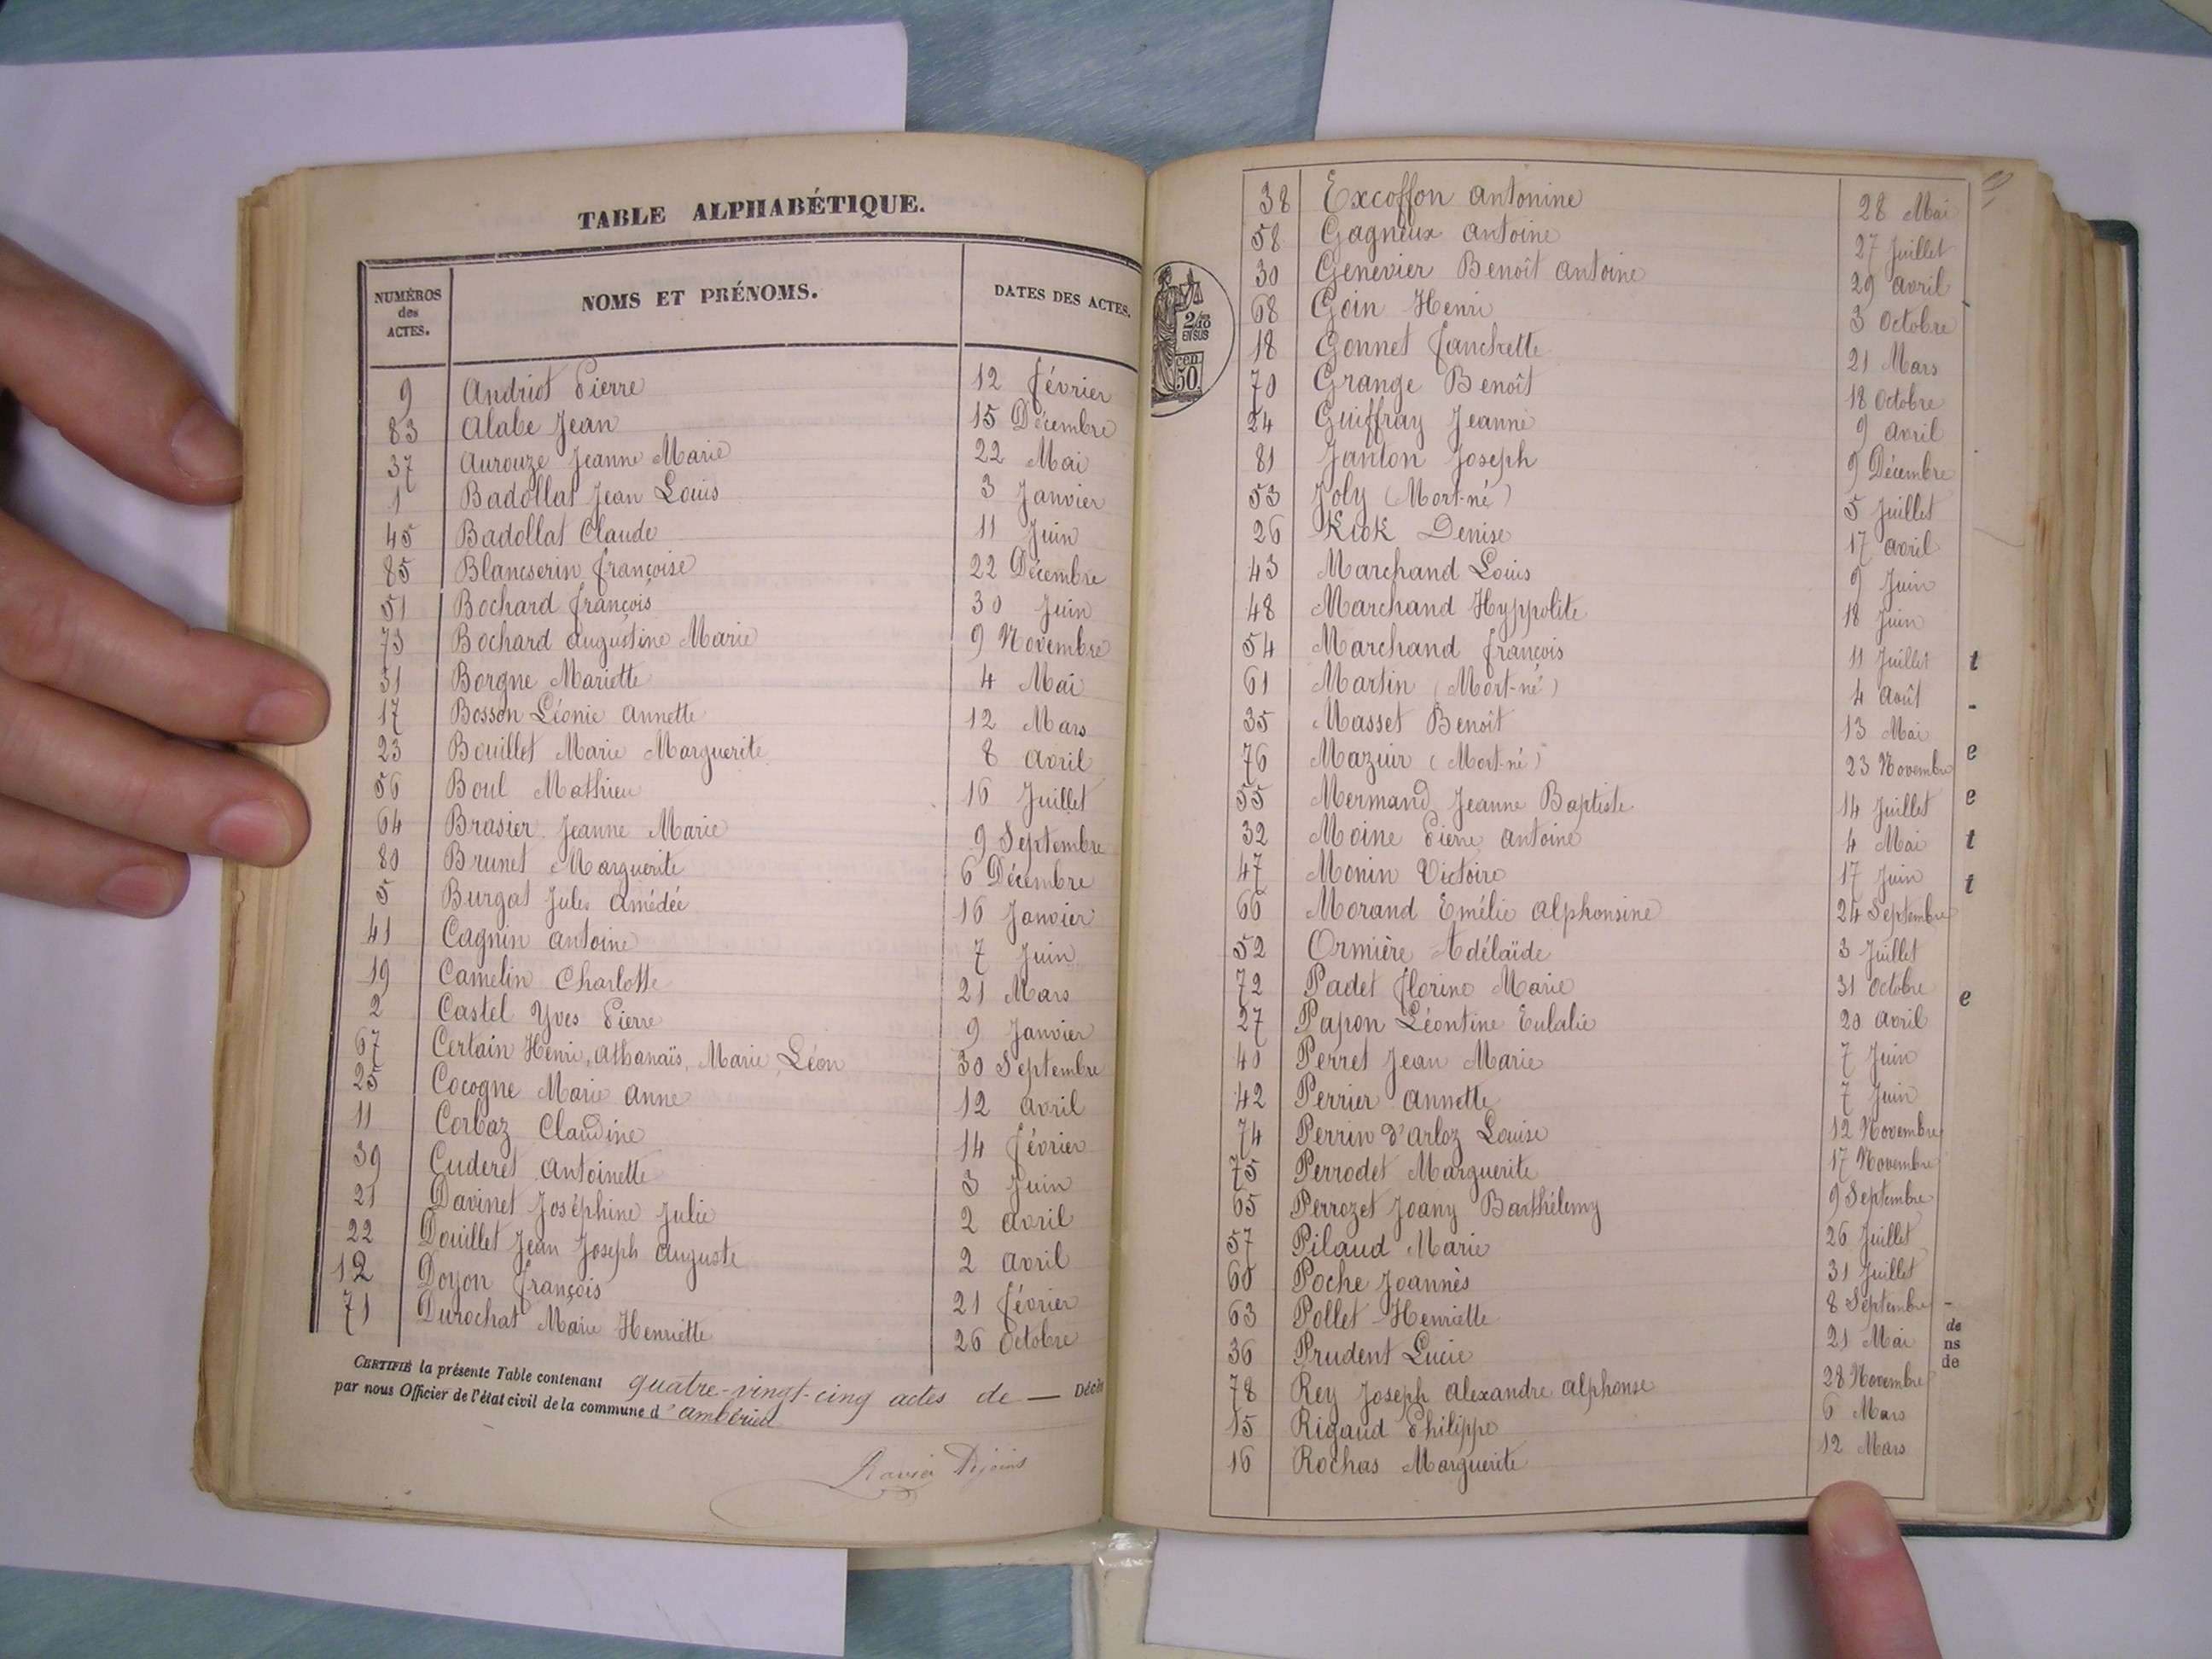 TABLE ALPHABÉTIQUE.
NUMÉROS des ACTES. NOMS ET PRÉNOMS. DATES DES ACTES.
9 Andriot Pierre 12 février
83 Alabe Jean 15 Décembre
37 Aurouze Jeanne Marie 22 Mai
1 Badollat Jean Louis 3 Janvier
45 Badollat Claude 11 Juin
85 Blancserin françoise 22 Décembre
51 Bochard françois 30 Juin
73 Bochard Augustine Marie 9 Novembre
31 Borgne Mariette 4 Mai
17 Bosson Léonie Annette 12 Mars
23 Bouillet Marie Marguerite 8 Avril
56 Boul Mathieu 16 Juillet
64 Brasier Jeanne Marie 9 Septembre
80 Brunet Marguerite 6 Décembre
5 Burgat Jules Amédée 16 Janvier
41 Cagnin Antoine 7 Juin
19 Camelin Charlotte 21 Mars
2 Castel Yves Pierre 9 Janvier
67 Certain Henri, Athanaïs, Marie, Léon 30 Septembre
25 Cocogne Marie Anne 12 Avril
11 Corbaz Claudine 14 février
39 Cuderet Antoinette 3 Juin
21 Davinet Joséphine Julie 2 Avril
22 Douillet Jean Joseph Auguste 2 Avril
12 Doyon françois 21 février
71 Durochat Marie Henriette 26 Octobre
CERTIFIÉ la présente Table contenant quatre-vingt-cinq actes de — Décès
par nous Officier de l'état civil de la commune d'Ambérieu
2/10 EN SUS
50 cen
38 Excoffon Antonine 28 Mai
58 Gagneux Antoine 27 Juillet
30 Genevier Benoît Antoine 29 Avril
68 Goin Henri 3 Octobre
18 Gonnet fanchette 21 Mars
70 Grange Benoît 18 Octobre
24 Guiffray Jeanne 9 Avril
81 Janton Joseph 9 Décembre
53 Joly (Mort-né) 5 Juillet
26 Kiok Denise 17 Avril
43 Marchand Louis 9 Juin
48 Marchand Hyppolite 18 Juin
54 Marchand françois 11 Juillet
61 Martin (Mort-né) 4 Août
35 Masset Benoît 13 Mai
76 Mazuir (Mort-né) 23 Novembre
55 Mermand Jeanne Baptiste 14 Juillet
32 Moine Pierre Antoine 4 Mai
47 Monin Victoire 17 Juin
66 Morand Emélie Alphonsine 24 Septembre
52 Ormière Adélaïde 3 Juillet
72 Padet florine Marie 31 Octobre
27 Papon Léontine Eulalie 20 Avril
40 Perret Jean Marie 7 Juin
42 Perrier Annette 7 Juin
74 Perrin d'Arloz Louise 12 Novembre
75 Perrodet Marguerite 17 Novembre
65 Perrozet Joany Barthélemy 9 Septembre
57 Pilaud Marie 26 Juillet
60 Poche Joannès 31 Juillet
63 Pollet Henriette 8 Septembre
36 Prudent Lucie 21 Mai
78 Rey Joseph Alexandre Alphonse 28 Novembre
15 Rigaud Philippe 6 Mars
16 Rochas Marguerite 12 Mars
t
-
e
e
t
t
e
-
de
ns
de